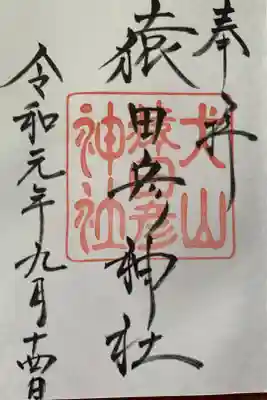 奉拝
猿田彦神社
犬山
猿田彦
神社
令和元年九月十四日